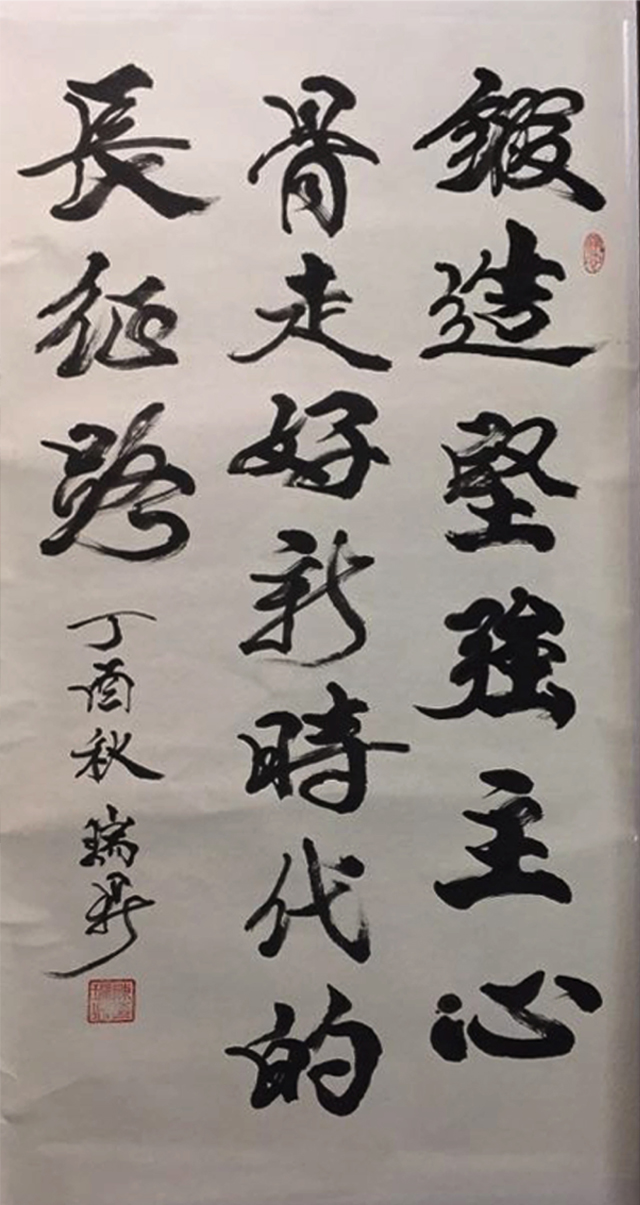 鍛造堅強主心
骨走好新時代的
長征路
丁酉秋 瑞鼎